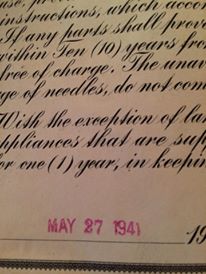 instructions, which acco
If any parts shall prove
within Ten (10) years from
free of charge. The unav
ge of needles, do not com
With the exception of la
ppliances that are sup
or one (1) year, in keepin
MAY 27 1941
19